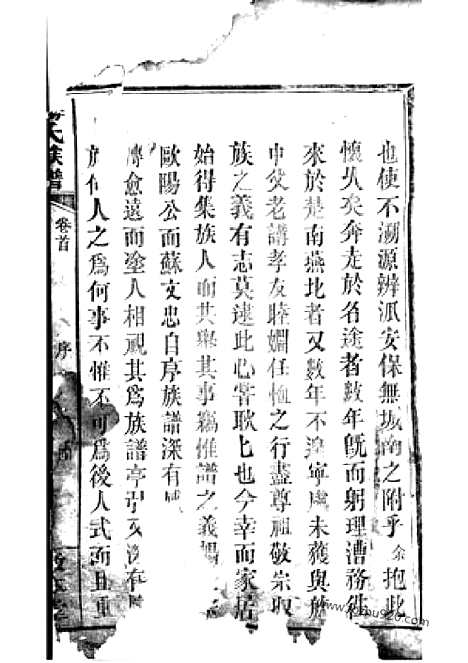 也使不溯源辨派安保無城南之附乎余抱此
懷久矣奔走於名途者數年旣而躬理漕務往
來於楚南燕北者又數年不遑寧處未獲與族
中父老講孝友睦婣任恤之行盡尊祖敬宗收
族之義有志莫逮此心嘗耿匕也今幸而家居
始得集族人而共舉其事竊惟譜之義
歐陽公而蘇文忠自序族譜深有
愈遠而塗人相視其爲族譜亭引又
何人之爲何事不惟不可爲後人式而且重
氏族譜
卷首
序